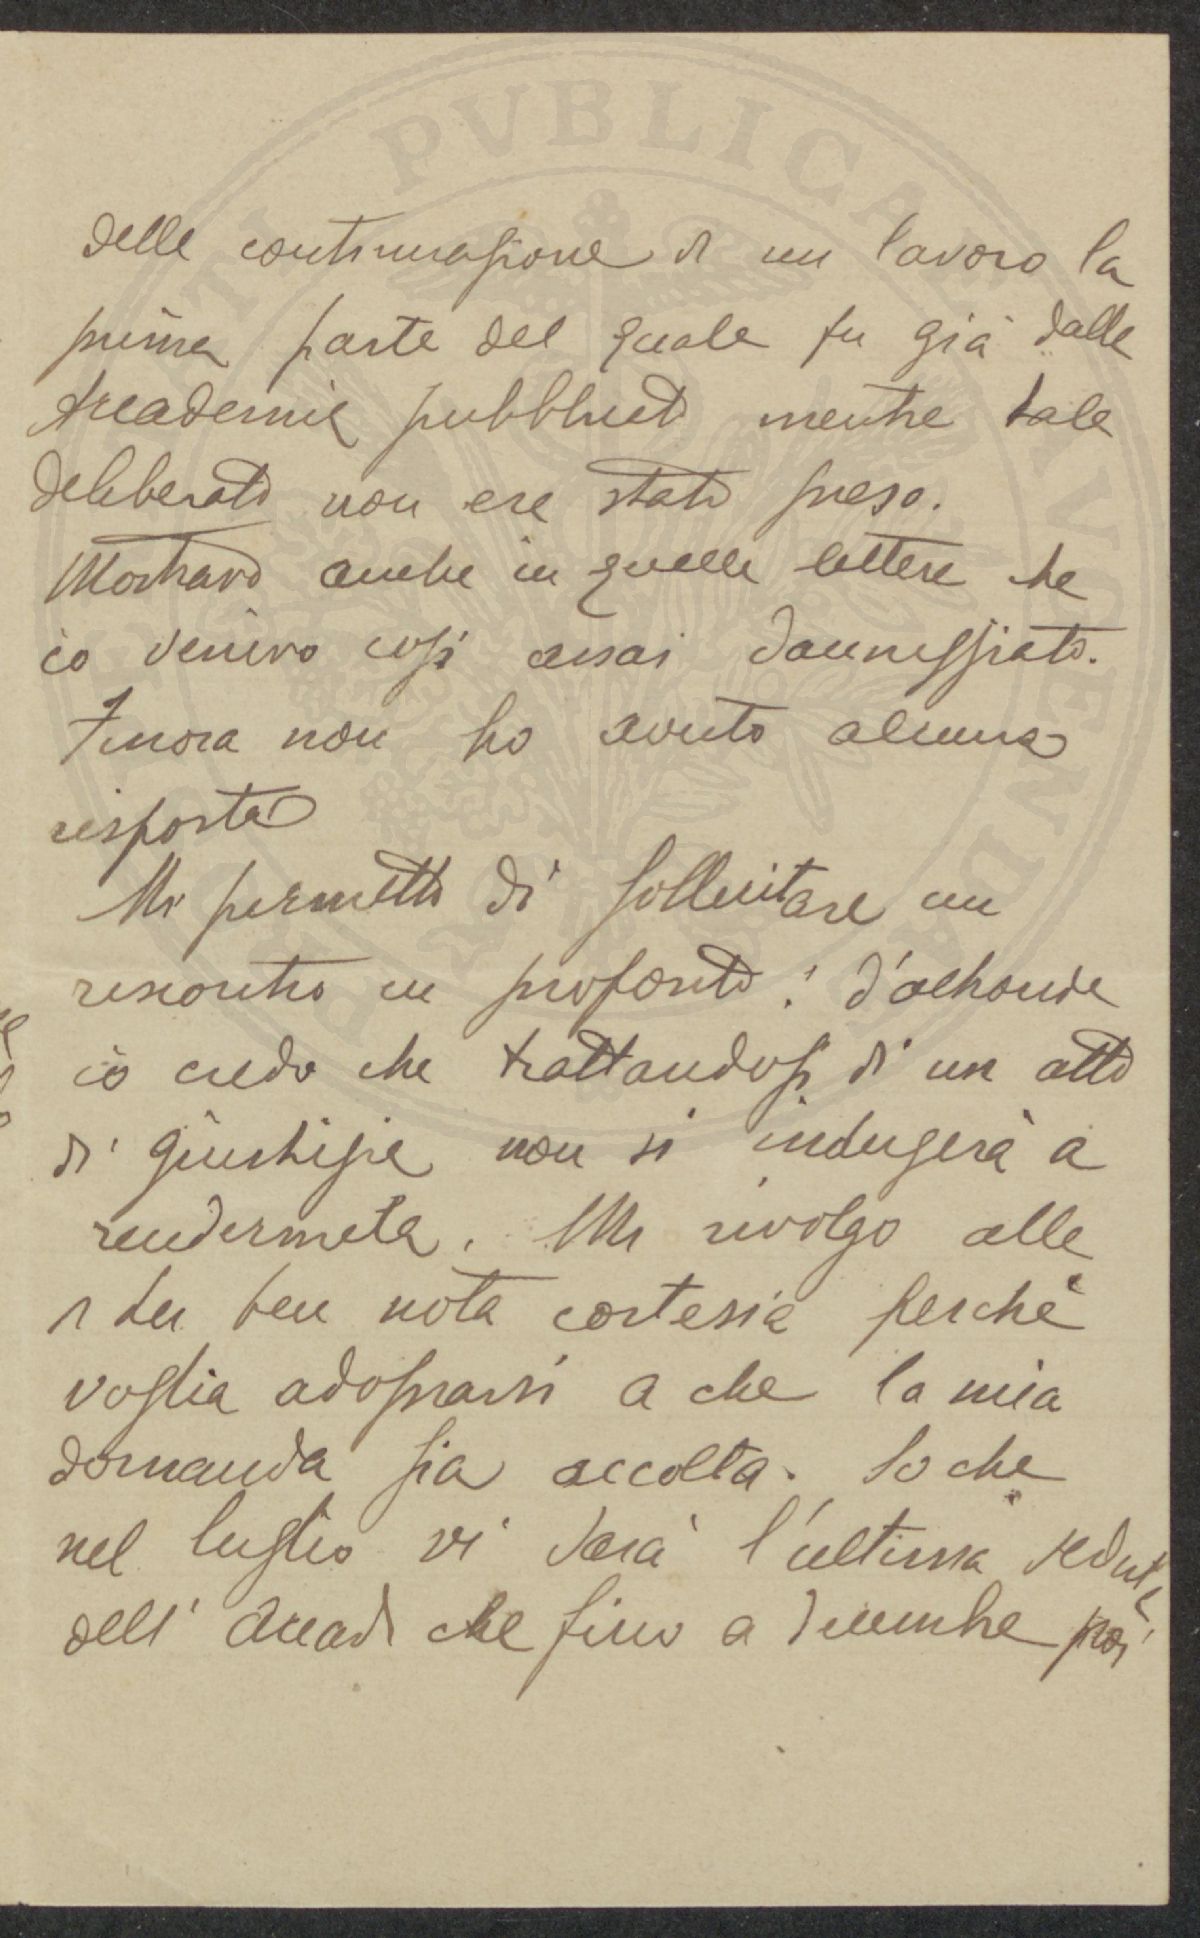 PVBLICAE VTILITATI PROVEHENDAE
della continuazione di un lavoro la
prima parte del quale fu già dalla
Accademia pubblicato mentre tale
deliberato non era stato preso.
Mostravo anche in quella lettera che
io venivo così assai danneggiato.
Finora non ho avuto alcuna
risposta
Mi permetto di sollecitare un
riscontro in proposito: d'altronde
io credo che trattandosi di un atto
di giustizia non si indugerà a
rendermela. Mi rivolgo alla
di Lei ben nota cortesia perchè
voglia adoprarsi a che la mia
domanda sia accolta. So che
nel luglio vi sarà l'ultima seduta
dell'Accad. che fino a Dicembre poi